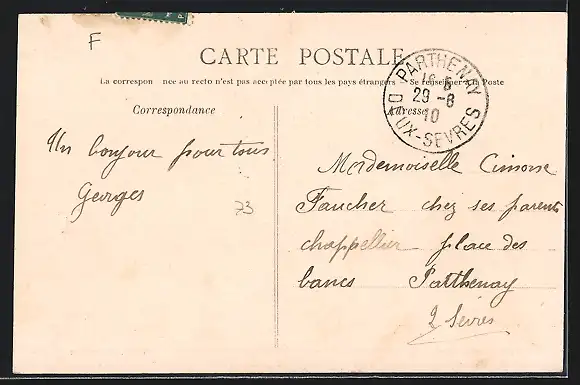 F
CARTE POSTALE
La correspon nce au recto n'est pas acceptée par tous les pays étrangers — Se renseigner à la Poste
PARTHENAY
16 5
29 - 8
10
DEUX-SEVRES
Correspondance
Adresse
Un bonjour pour tous
Georges
73
Mademoiselle Cimone
Faucher chez ses parents
chappellier place des
bancs Parthenay
2 Sèvres